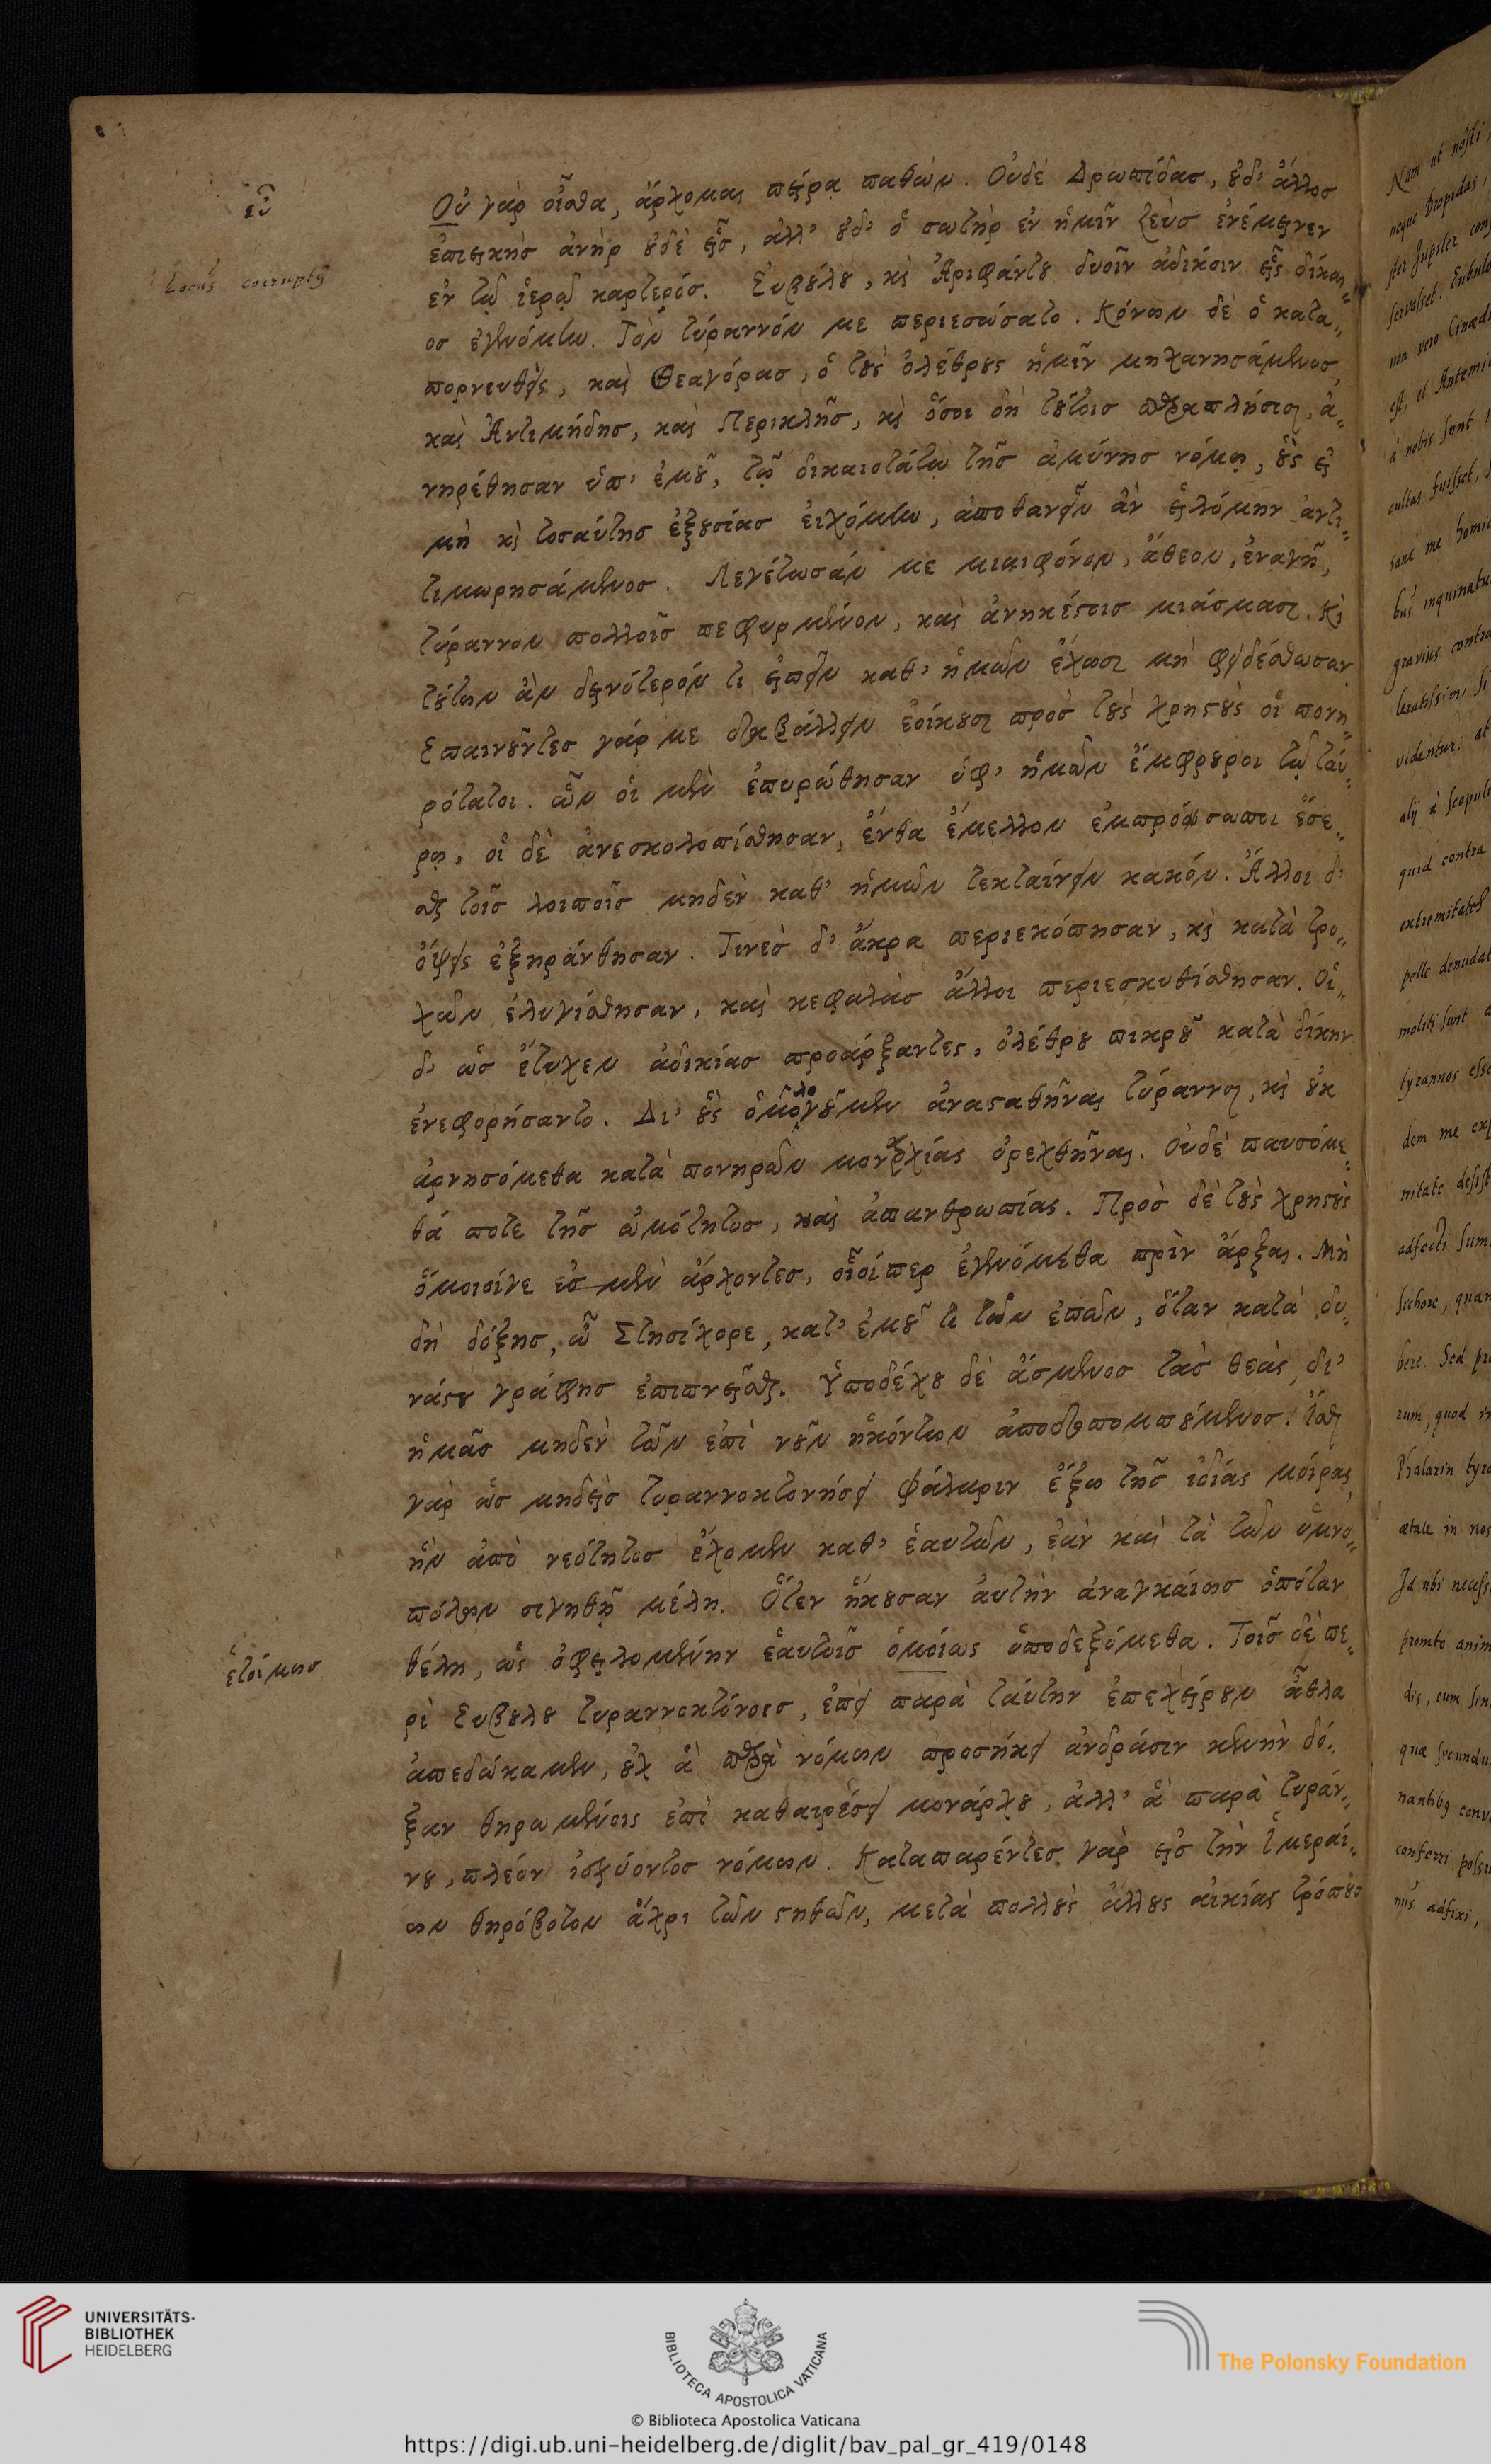 εὖ
Οὐ γὰρ οἶσθα, ἄρχομαι πείρᾳ παθών. Οὐδὲ Δρωπίδας, οὐδ' ἄλλος
ἐπιεικὴς ἀνὴρ οὐδὲ εἷς, ἀλλ' οὐδ' ὁ σωτὴρ ἐν ἡμῖν ζεὺς ἐνέμεινεν
Locus corruptus
ἐν τῷ ἱερῷ καρτερός. Εὐβούλου, καὶ Ἀριφάντου δυοῖν ἀδίκοιν εἷς δίκαι„
ος ἐγενόμην. Τὸν τύραννόν με περιεσώσατο. Κόνων δὲ ὁ κατα„
πορνευθεὶς, καὶ Θεαγόρας, ὁ τοὺς ὀλέθρους ἡμῖν μηχανησάμενος,
καὶ Ἀντιμήδης, καὶ Περικλῆς, καὶ ὅσοι δὴ τούτοις παραπλήσιοι, ἀ„
νηρέθησαν ὑπ' ἐμοῦ, τῷ δικαιοτάτῳ τῆς ἀμύνης νόμῳ, οὓς εἰ
μὴ καὶ τοσαύτης ἐξουσίας εἰχόμην, ἀποθανεῖν ἂν εἱλόμην ἀντι„
τιμωρησάμενος. Λεγέτωσάν με μιαιφόνον, ἄθεον, ἐναγῆ,
τύραννον πολλοῖς πεφυρμένον, καὶ ἀνηκέστοις μιάσμασι. Κἂ
τούτων ἂν δεινότερόν τι εἰπεῖν καθ' ἡμῶν ἔχωσι μὴ φειδέσθωσαν
Ἐπαινοῦντες γάρ με διαβάλλειν ἐοίκασι πρὸς τοὺς χρηστοὺς οἱ πονη„
ρότατοι. ὧν οἱ μὲν ἐπυρώθησαν ὑφ' ἡμῶν ἔμφρουροι τῷ ταύ„
ρῳ, οἱ δὲ ἀνεσκολοπίσθησαν, ἔνθα ἔμελλον ἐμπρόσωποι ἔσε„
σθαι τοῖς λοιποῖς μηδὲν καθ' ἡμῶν τεκταίνειν κακόν. Ἄλλοι δ'
ὄψεις ἐξηράνθησαν. Τινὲς δ' ἄκρα περιεκόπησαν, καὶ κατὰ τρο„
χῶν ἐλυγίσθησαν, καὶ κεφαλὰς ἄλλοι περιεσκυθίσθησαν. Οἱ„
δ' ὡς ἔτυχεν ἀδικίας προάρξαντες, ὀλέθρου πικροῦ κατὰ δίκην
ἐνεφορήσαντο. Δι' οὓς ὁμολογοῦμεν ἀνασταθῆναι τύραννοι, καὶ οὐκ
ἀρνησόμεθα κατὰ πονηρῶν μοναρχίας ὀρεχθῆναι. Οὐδὲ παυσόμε„
θά ποτε τῆς ὠμότητος, καὶ ἀπανθρωπίας. Πρὸς δὲ τοὺς χρηστοὺς
ὅμοιοίγε ἐσμὲν ἄρχοντες, οἷοίπερ ἐγενόμεθα πρὶν ἄρξαι. Μὴ
δὴ δόξῃς, ὦ Στησίχορε, κατ' ἐμοῦ τι τῶν ἐπῶν, ὅταν κατὰ δυ„
νάστου γράφῃς ἐπιπνεῖσθαι. Ὑποδέχου δὲ ἄσμενος τὰς θεὰς, δι'
ἡμᾶς μηδὲν τῶν ἐπὶ νοῦν ἡκόντων ἀποδιοπομπούμενος. Ἴσθι
γὰρ ὡς μηδεὶς τυραννοκτονήσει Φάλαριν ἔξω τῆς ἰδίας μοίρας,
ἣν ἀπὸ νεότητος ἔχομεν καθ' ἑαυτῶν, ἐὰν καὶ τὰ τῶν ὑμνο„
πόλων σιγηθῇ μέλη. Ὅτεν ἥκουσαν αὐτὴν ἀναγκαίως ὁπόταν
ἑτοίμως
θέλῃ, ὡς ὀφειλομένην ἑαυτοῖς ὁμοίως ὑποδεξόμεθα. Τοῖς δὲ πε„
ρὶ Εὐβούλου τυραννοκτόνοις, ἐπεὶ παρὰ ταύτην ἐπεχείρουν ἆθλα
ἀπεδώκαμεν, οὐχ ἃ παρὰ νόμων προσήκει ἀνδράσιν κενὴν δό„
ξαν θηρωμένοις ἐπὶ καθαιρέσει μονάρχου, ἀλλ' ἃ παρὰ τυράν„
νου, πλέον ἰσχύοντος νόμων. Καταπαρέντες γὰρ εἰς τὴν Ἱμεραί„
ων θηρόβοτον ἄχρι τῶν στηθῶν, μετὰ πολλοὺς ἄλλους αἰκίας τρόπους
Nam ut nosti
neque Dropidas,
ster Jupiter con
servasset. Eubulo
non vero Cinædi
est, et Antemi
à nobis sunt
cultas fuisset,
sanè me homi
bus inquinatu
gravius contra
leratissimi
videntur: at
alij à scopuli
quid contra
extremitates
pelle denudat
moliti sunt
tyrannos esse
dem me exp
nitate desist
adfecti sum
sichore, quan
bere. Sed pr
rum, quod in
Phalarin tyra
ætate in nos
Id ubi necess
promto anim
dis, cum sen
quæ secundu
nantibus conv
conferri posse
nis adfixi,
UNIVERSITÄTS-
BIBLIOTHEK
HEIDELBERG
BIBLIOTECA APOSTOLICA VATICANA
The Polonsky Foundation
© Biblioteca Apostolica Vaticana
https://digi.ub.uni-heidelberg.de/diglit/bav_pal_gr_419/0148